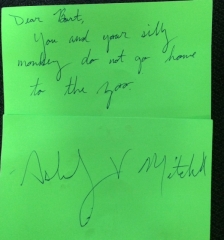 Dear Bart,
You and your silly
monkey do not go home
to the zoo.
Mitchell